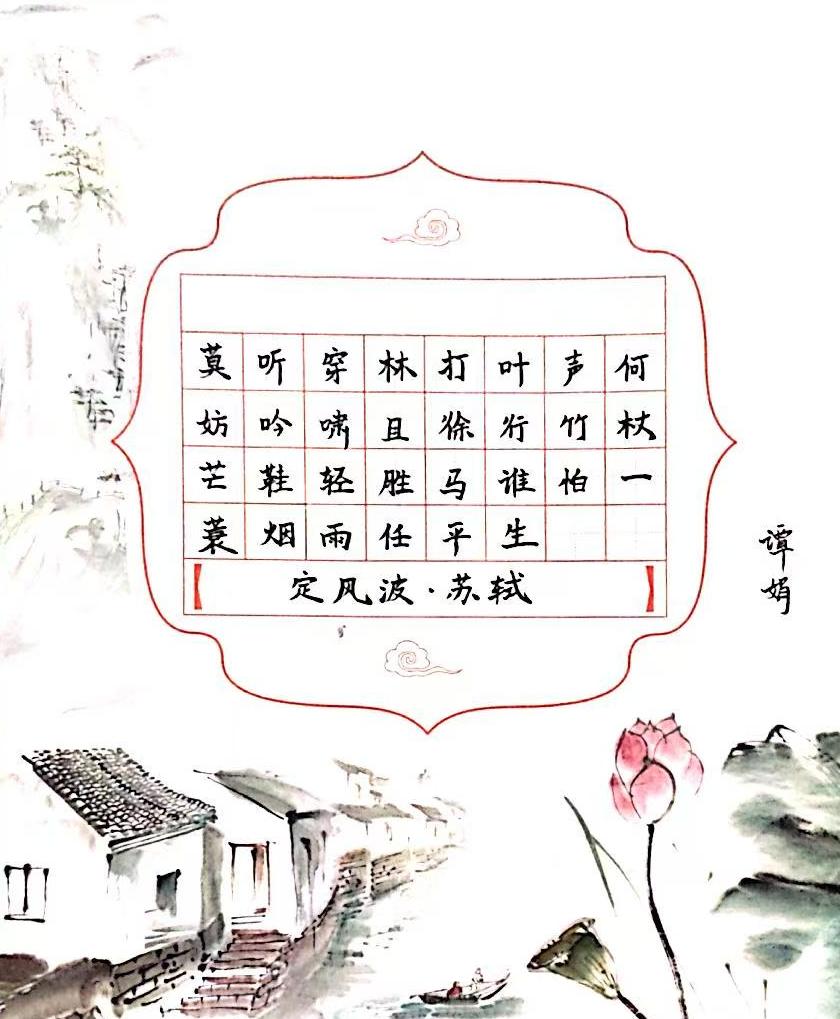 莫听穿林打叶声何
妨吟啸且徐行竹杖
芒鞋轻胜马谁怕一
蓑烟雨任平生
【定风波·苏轼】
谭娟